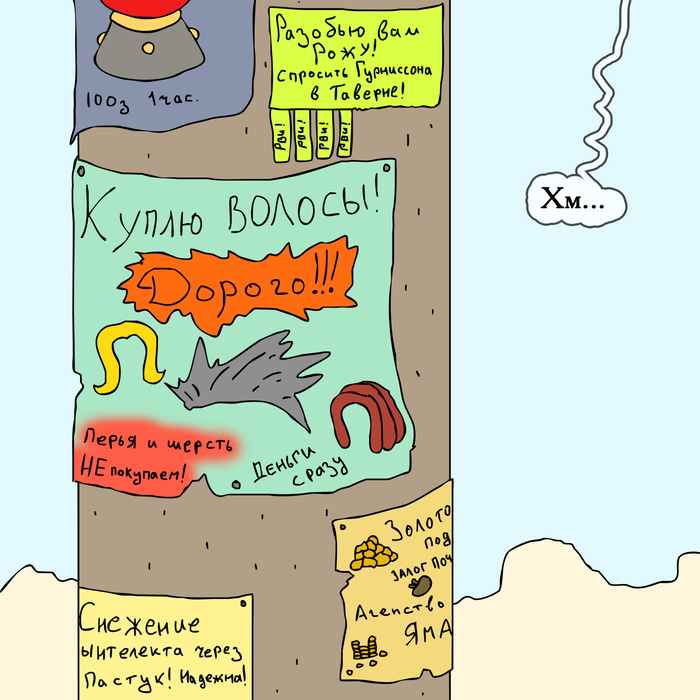 100з 1час.
Разобью вам
Рожу!
Спросить Гурниссона
в Таверне!
Рви!
Рви!
Рви!
Рви!
Хм...
Куплю волосы!!
Дорого!!!
Перья и шерсть
НЕ покупаем!
Деньги
сразу
Золото
под
залог поч
Агенство
ЯМА
Снежение
ыителекта через
Пастук! Надежна!